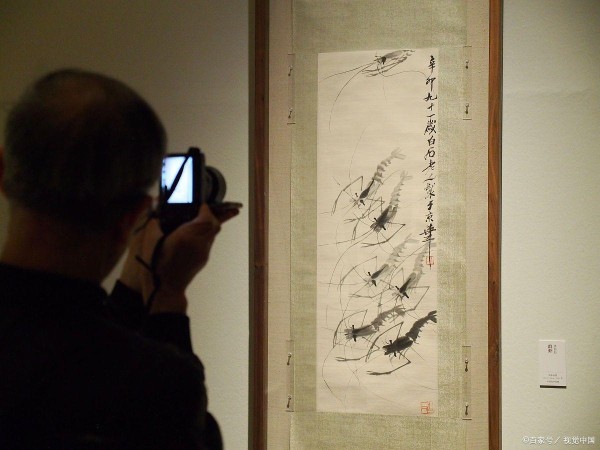 辛卯九十一歲白石老人製于京華
©百家号／视觉中国